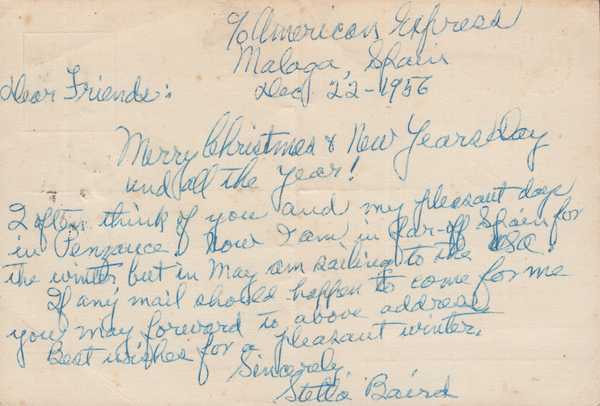 ℅ American Express
Malaga, Spain
Dec. 22-1956
Dear Friends:
Merry Christmas & New Years Day
and all the year!
I often think of you and my pleasant days
in Penzance. Now I am in far-off Spain for
the winter but in May am sailing to the USA.
If any mail should happen to come for me
you may forward to above address.
Best wishes for a pleasant winter.
Sincerely,
Stella Baird